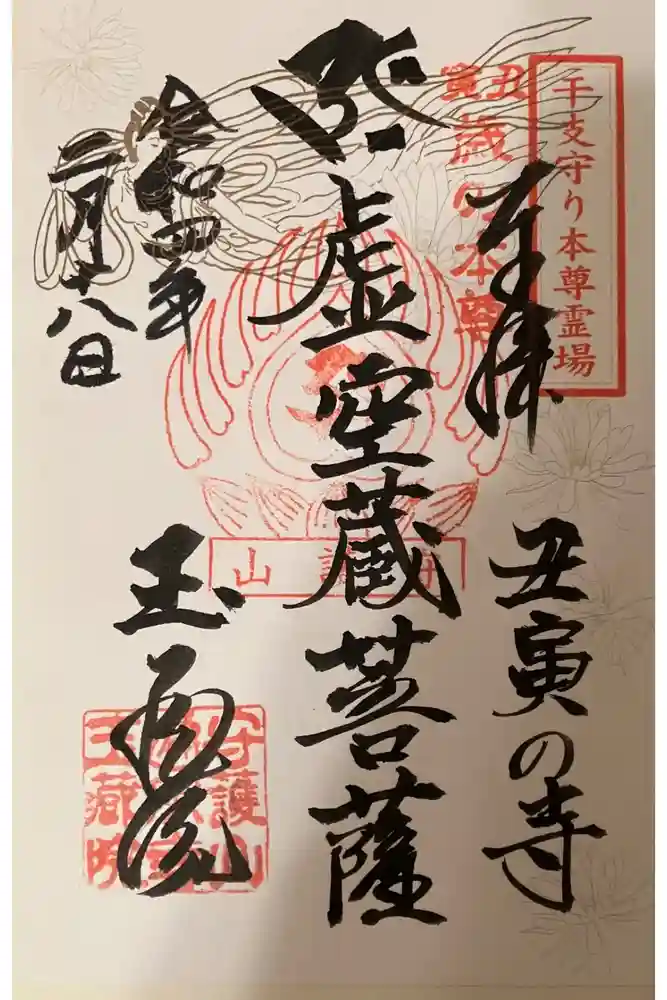 干支守り本尊霊場
丑寅歳の本尊
奉拝
丑寅の寺
虚空蔵菩薩
守護山
令和四年
二月十八日
玉蔵院
守護山
玉蔵院